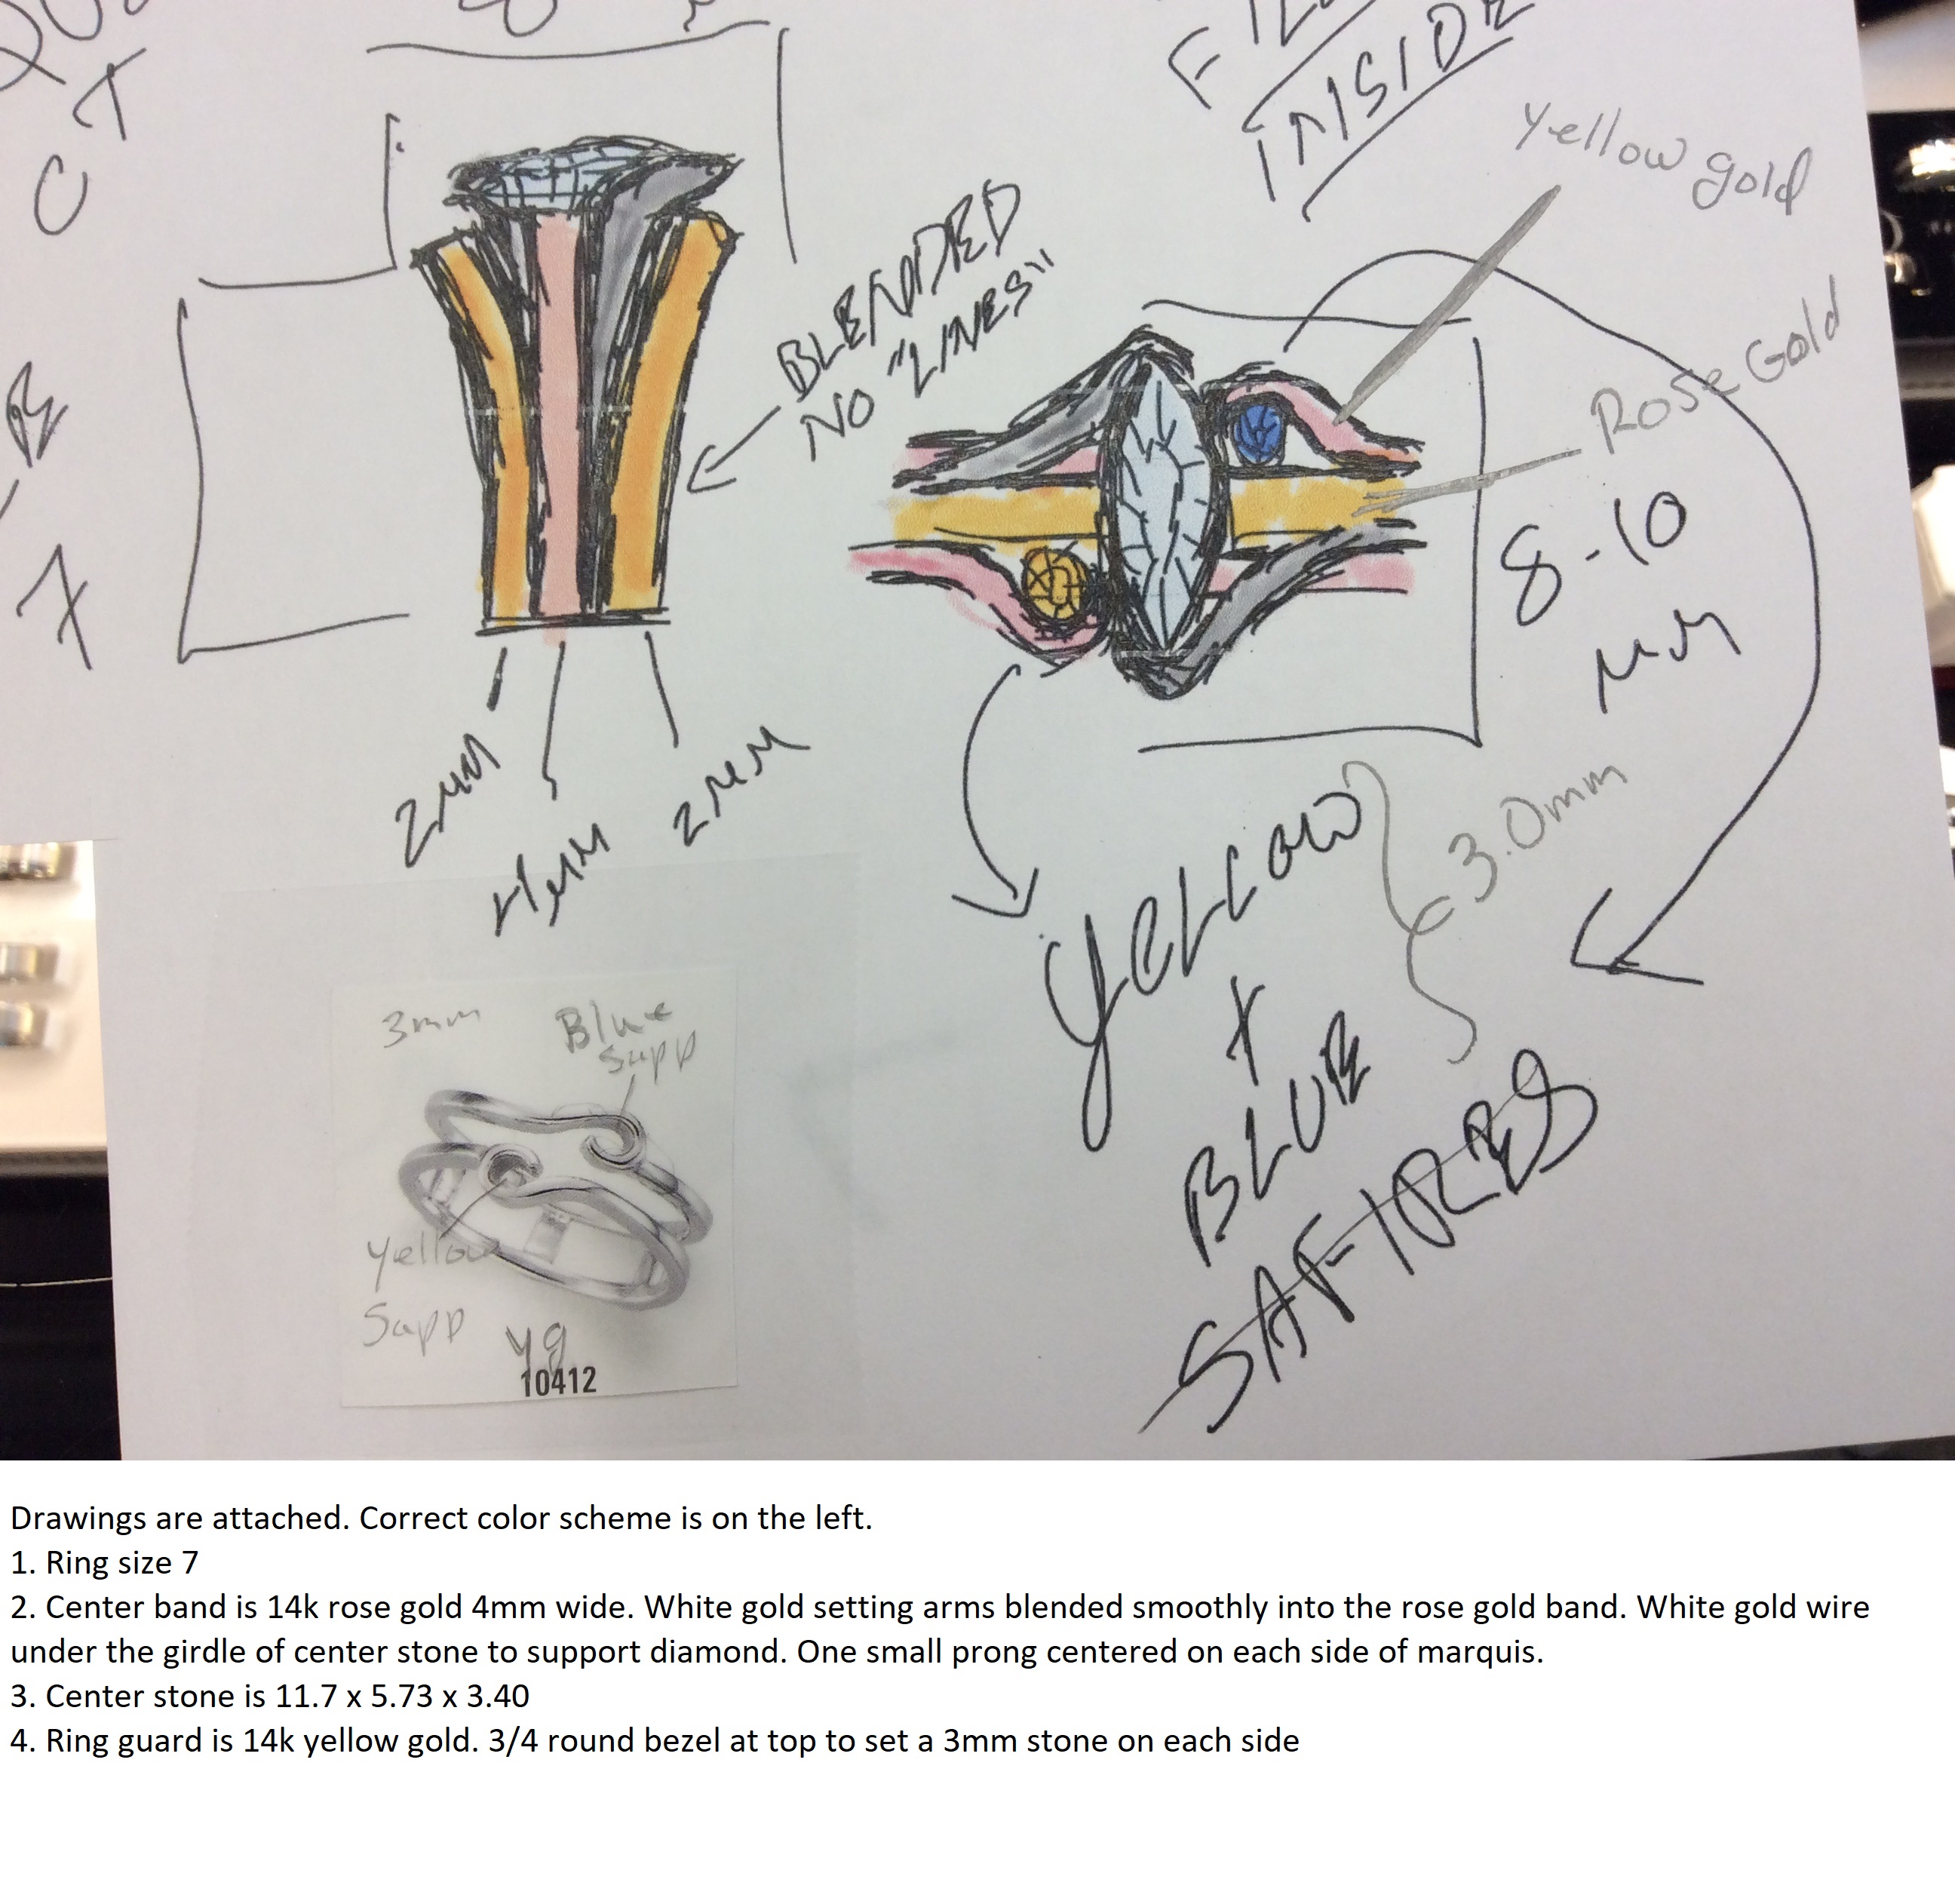 INSIDE
yellow gold
BLENDED
NO "LINES"
Rose Gold
8-10
MM
2MM
4MM
2MM
YELLOW
+
BLUE
SAFIRES
3.0mm
3mm
Blue
Sapp
Yellow
Sapp
yg
10412
Drawings are attached. Correct color scheme is on the left.
1. Ring size 7
2. Center band is 14k rose gold 4mm wide. White gold setting arms blended smoothly into the rose gold band. White gold wire
under the girdle of center stone to support diamond. One small prong centered on each side of marquis.
3. Center stone is 11.7 x 5.73 x 3.40
4. Ring guard is 14k yellow gold. 3/4 round bezel at top to set a 3mm stone on each side